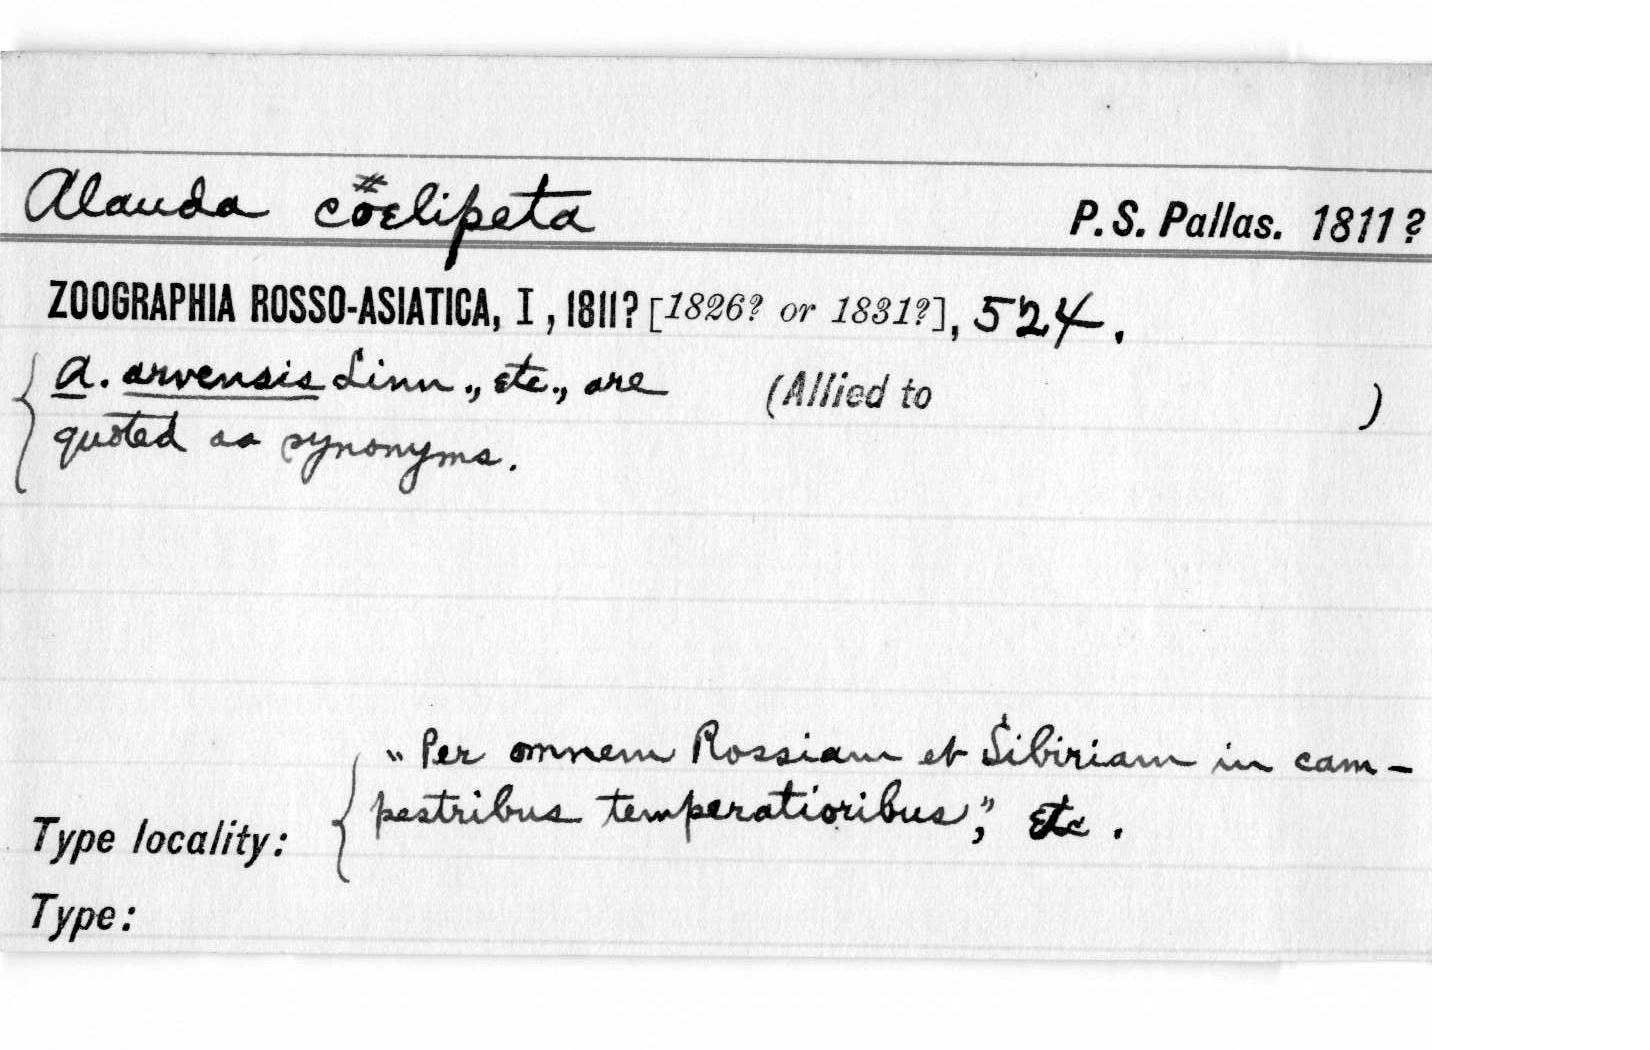 Alauda coelipeta P. S. Pallas. 1811?
ZOOGRAPHIA ROSSO-ASIATICA, I, 1811? [1826? or 1831?], 524.
A. arvensis Linn., etc., are (Allied to )
quoted as synonyms.
"Per omnem Rossiam et Sibiriam in cam-
pestribus temperatioribus," etc.
Type locality:
Type: